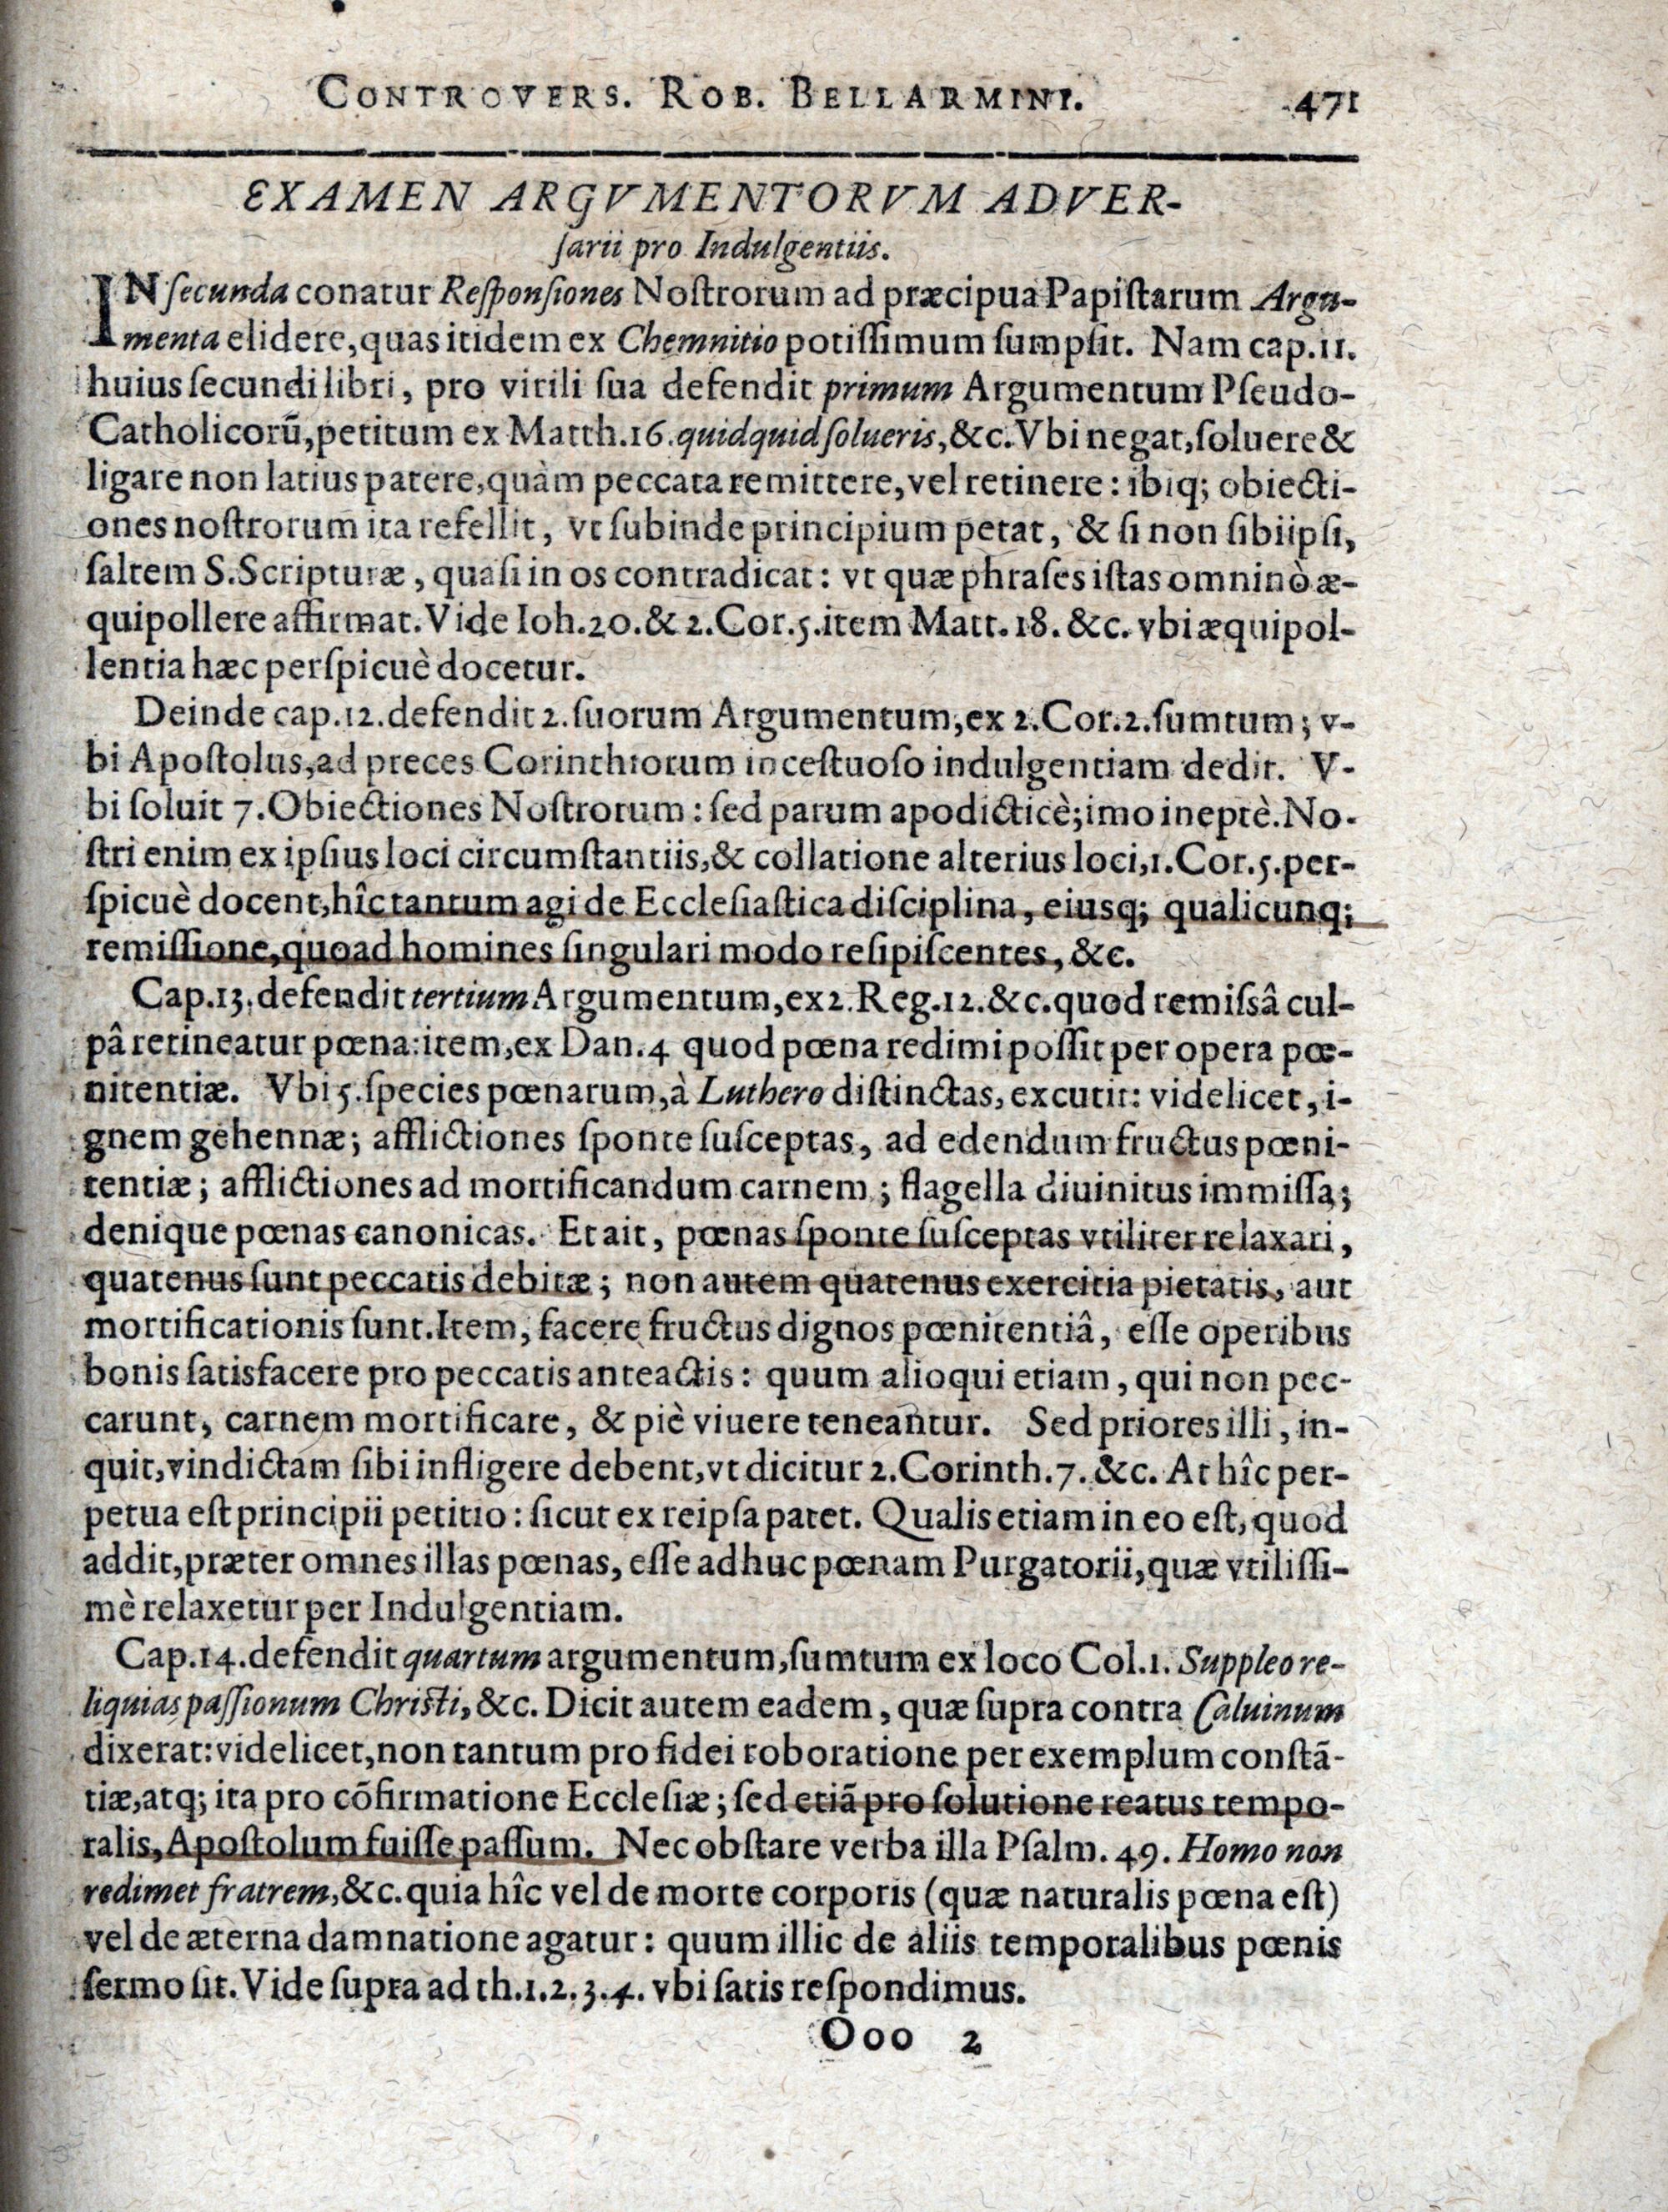 CONTROVERS. ROB. BELLARMINI. 471
EXAMEN ARGVMENTORVM ADVER-
ſarii pro Indulgentiis.
IN ſecunda conatur Reſponſiones Noſtrorum ad præcipua Papiſtarum Argu-
menta elidere, quas itidem ex Chemnitio potiſſimum ſumpſit. Nam cap. 11.
huius ſecundi libri, pro virili ſua defendit primum Argumentum Pſeudo-
Catholicorũ, petitum ex Matth. 16. quidquid ſolueris, &c. Vbi negat, ſoluere &
ligare non latius patere, quàm peccata remittere, vel retinere: ibiq; obiecti-
ones noſtrorum ita refellit, vt ſubinde principium petat, & ſi non ſibiipſi,
ſaltem S. Scripturæ, quaſi in os contradicat: vt quæ phraſes iſtas omninò æ-
quipollere affirmat. Vide Ioh. 20. & 2. Cor. 5. item Matt. 18. &c. vbi æquipol-
lentia hæc perſpicuè docetur.
Deinde cap. 12. defendit 2. ſuorum Argumentum, ex 2. Cor. 2. ſumtum; v-
bi Apoſtolus, ad preces Corinthiorum inceſtuoſo indulgentiam dedit. V-
bi ſoluit 7. Obiectiones Noſtrorum: ſed parum apodicticè; imo ineptè. No-
ſtri enim ex ipſius loci circumſtantiis, & collatione alterius loci, 1. Cor. 5. per-
ſpicuè docent, hîc tantum agi de Eccleſiaſtica diſciplina, eiusq; qualicunq;
remiſſione, quoad homines ſingulari modo reſipiſcentes, &c.
Cap. 13. defendit tertium Argumentum, ex 2. Reg. 12. &c. quod remiſsâ cul-
pâ retineatur pœna: item, ex Dan. 4 quod pœna redimi poſſit per opera pœ-
nitentiæ. Vbi 5. ſpecies pœnarum, à Luthero diſtinctas, excutit: videlicet, i-
gnem gehennæ; afflictiones ſponte ſuſceptas, ad edendum fructus pœni-
tentiæ; afflictiones ad mortificandum carnem; flagella diuinitus immiſſa;
denique pœnas canonicas. Et ait, pœnas ſponte ſuſceptas vtiliter relaxari,
quatenus ſunt peccatis debitæ; non autem quatenus exercitia pietatis, aut
mortificationis ſunt. Item, facere fructus dignos pœnitentiâ, eſſe operibus
bonis ſatisfacere pro peccatis anteactis: quum alioqui etiam, qui non pec-
carunt, carnem mortificare, & piè viuere teneantur. Sed priores illi, in-
quit, vindictam ſibi infligere debent, vt dicitur 2. Corinth. 7. &c. At hîc per-
petua eſt principii petitio: ſicut ex reipſa patet. Qualis etiam in eo eſt, quod
addit, præter omnes illas pœnas, eſſe adhuc pœnam Purgatorii, quæ vtiliſſi-
mè relaxetur per Indulgentiam.
Cap. 14. defendit quartum argumentum, ſumtum ex loco Col. 1. Suppleo re-
liquias paſſionum Chriſti, &c. Dicit autem eadem, quæ ſupra contra Caluinum
dixerat: videlicet, non tantum pro fidei roboratione per exemplum conſtã-
tiæ, atq; ita pro cõfirmatione Eccleſiæ; ſed etiã pro ſolutione reatus tempo-
ralis, Apoſtolum fuiſſe paſſum. Nec obſtare verba illa Pſalm. 49. Homo non
redimet fratrem, &c. quia hîc vel de morte corporis (quæ naturalis pœna eſt)
vel de æterna damnatione agatur: quum illic de aliis temporalibus pœnis
ſermo ſit. Vide ſupra ad th. 1. 2. 3. 4. vbi ſatis reſpondimus.
Ooo 2